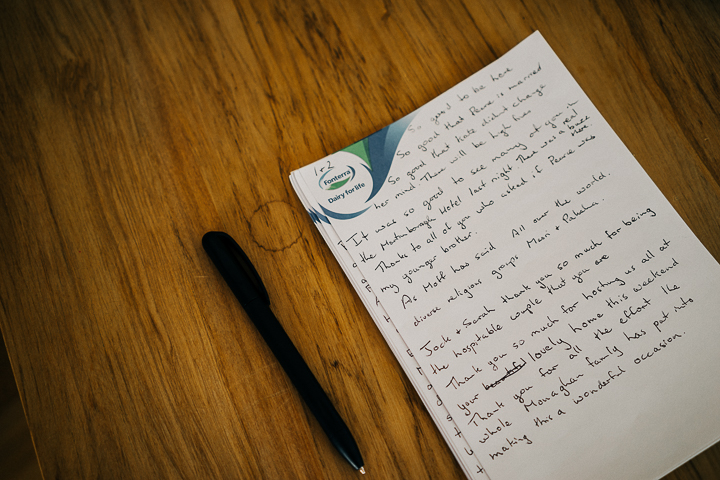 1-2
Fonterra
Dairy for life
So good to be here
So good that Pearce is married
So good that Kate didn't change
her mind. There will be high fives
It was so good to see many of you in
the Martinborough Hotel last night. There was a buzz there
real
Thanks to all of you who asked if Pearce was
my younger brother.
As Matt has said All over the world.
diverse religious groups Maori + Pakeha.
Jock + Sarah thank you so much for being
the hospitable couple that you are
Thank you so much for hosting us all at
your beautiful lovely home this weekend
Thank you for all the effort the
whole Monaghan family has put into
making this a wonderful occasion.